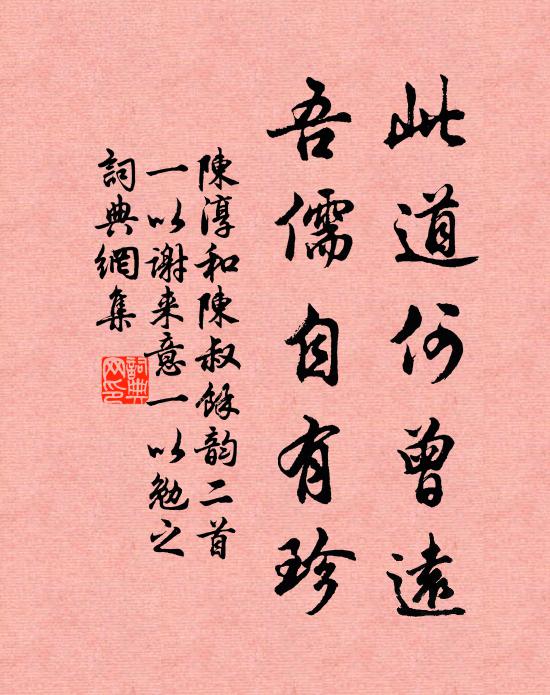 此道何曾遠
吾儒自有珍
陳淳和陳叔餘韵二首
一以謝来意一以勉之
詞典網集
詞典
网印